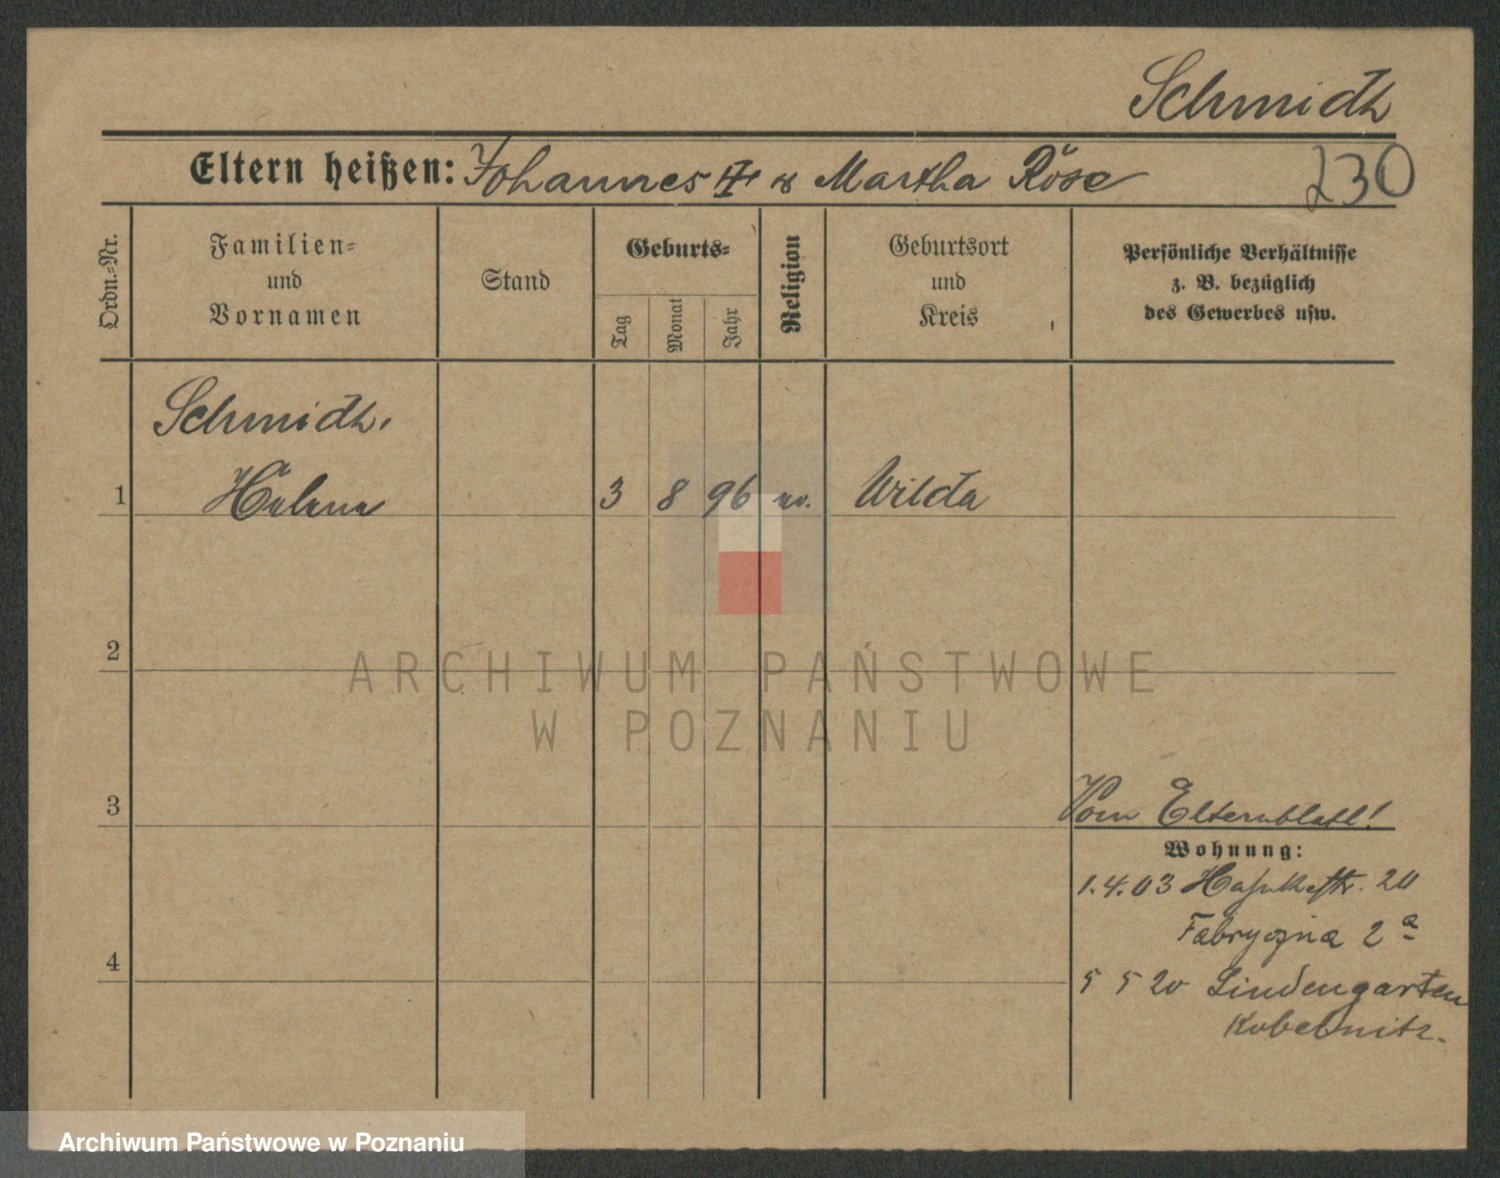 Schmidt
Eltern heißen: Johannes ☩ u Martha Röse
230
Ordn.-Nr.
Familien-
und
Vornamen
Stand
Geburts-
Tag
Monat
Jahr
Religion
Geburtsort
und
Kreis
Persönliche Verhältnisse
z. B. bezüglich
des Gewerbes usw.
Schmidt,
1 Helene 3 8 96 ev. Wilda
2
ARCHIWUM PAŃSTWOWE
W POZNANIU
3
Vom Elternblatt!
Wohnung:
1.4.03
Fabryczna 2 a
4
5 5 20 Lindengarten
Kobelnitz.
Archiwum Państwowe w Poznaniu